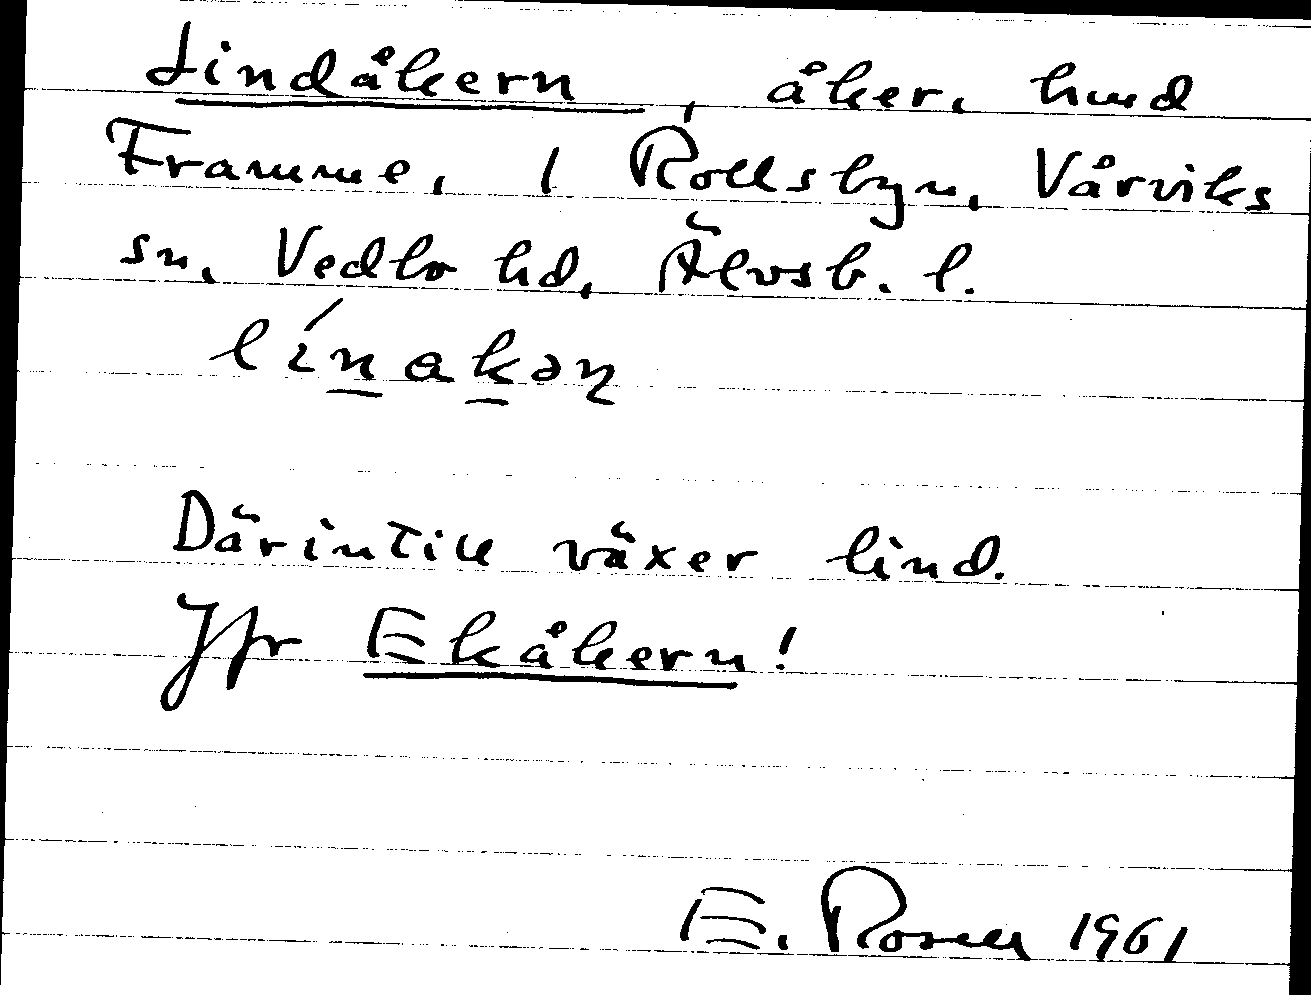 Lindåkern, åker, hmd
Framme, 1 Rollsbyn, Vårviks
sn, Vedbo hd, Älvsb. l.
línakən
Därintill växer lind.
Jfr Ekåkern!
E. Rosell 1961